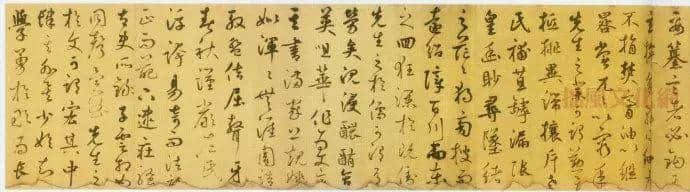 要纂言者必鉤其
不捐焚膏油以繼
晷常兀兀以窮年
先生之業可謂勤矣
觝排異端攘斥佛
老補苴罅漏張
皇幽眇尋墜緒
之茫茫獨旁搜而
遠紹障百川而東
之迴狂瀾於既倒
先生之於儒可謂有
勞矣沉浸醲郁含
英咀華作為文章
其書滿家上規姚
姒渾渾無涯周誥
殷盤佶屈聱牙
春秋謹嚴左氏
浮誇易奇而法詩
正而葩下逮莊騷
太史所錄子雲相如
同工異曲先生之
於文可謂宏其中
肆其外矣少始知
學勇於敢為長
文化網